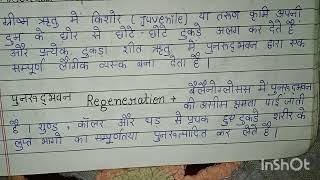 ग्रीष्म ऋतु में किशोर ( Juvenile ) या तरुण कृमि अपनी
दुम के छोर से छोटे - छोटे टुकड़े अलग कर देते हैं
और प्रत्येक टुकड़ा शीत ऋतु में पुनरुद्भवन द्वारा एक
सम्पूर्ण लैंगिक व्यस्क बना देता है ।
पुनरुद्भवन Regeneration + बैलैनोग्लोसस में पुनरुद्भवन
की असीम क्षमता पाई जाती
है । शुण्ड , कॉलर और धड़ में पृथक हुए टुकड़े शरीर के
लुप्त भागों को सम्पूर्णतया पुनरुत्पादित कर लेते हैं ।
InShot